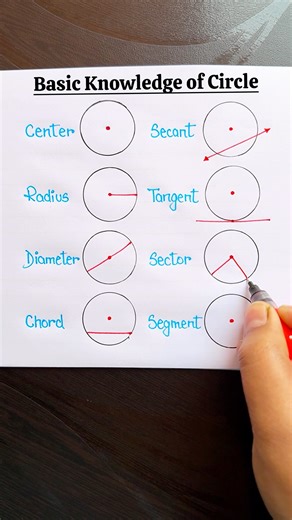 Basic Knowledge of Circle
Center
Secant
Radius
Tangent
Diameter
Sector
Chord
Segment